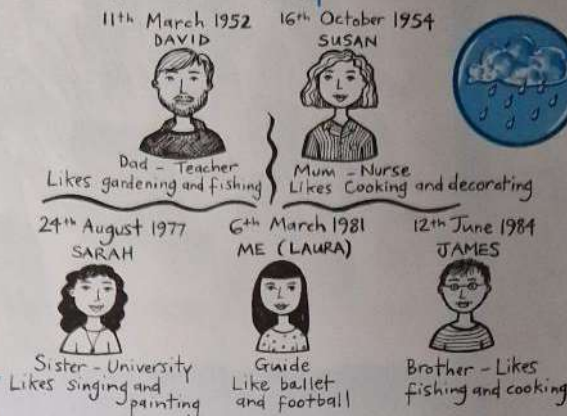 11th March 1952
DAVID
Dad - Teacher
Likes gardening and fishing
16th October 1954
SUSAN
Mum - Nurse
Likes Cooking and decorating
24th August 1977
SARAH
Sister - University
Likes singing and
painting
6th March 1981
ME (LAURA)
Guide
Like ballet
and football
12th June 1984
JAMES
Brother - Likes
fishing and cooking